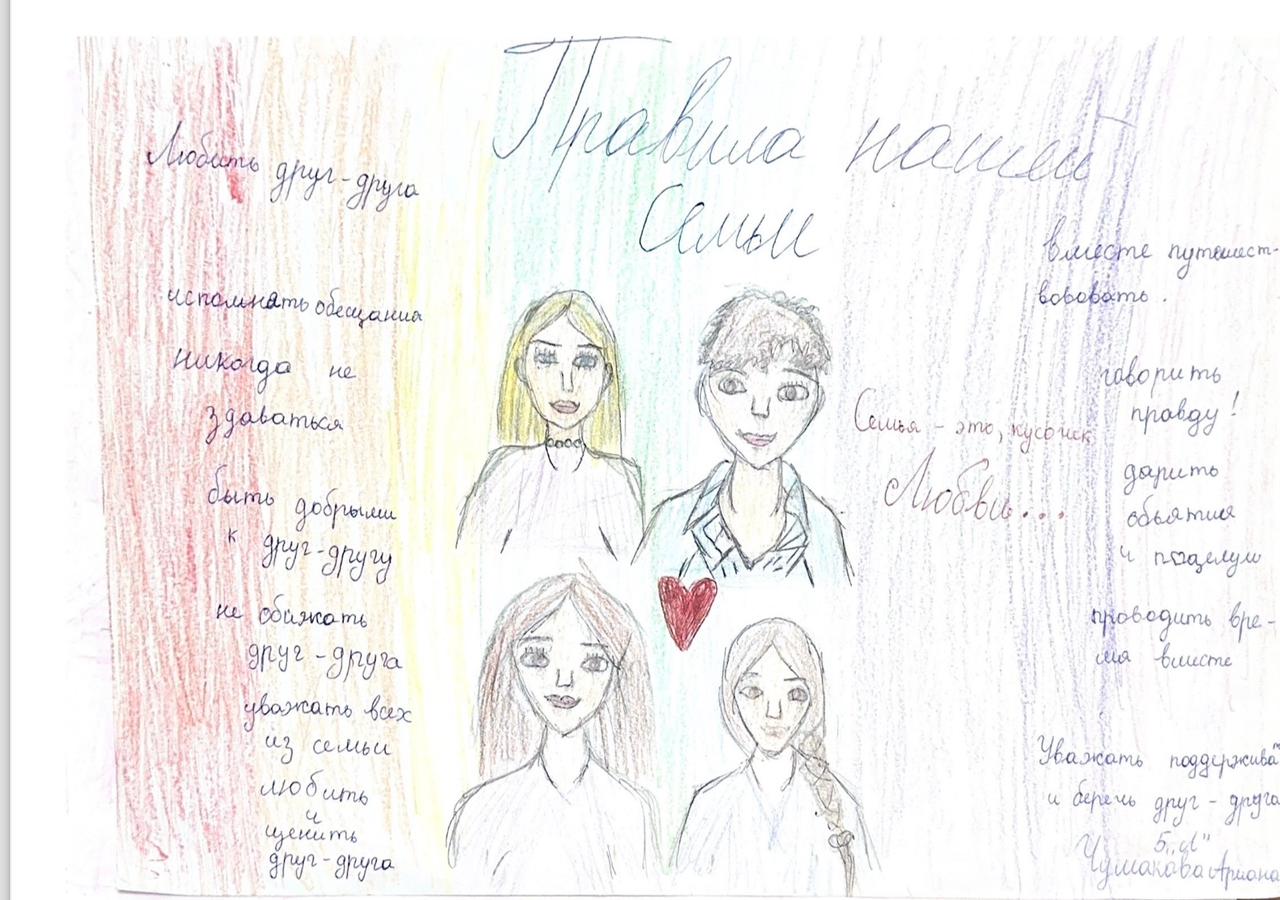 Правила нашей
Семьи
Любить друг-друга
исполнять обещания
никогда не
здаваться
быть добрыми
к друг-другу
не обижать
друг-друга
уважать всех
из семьи
любить
и
ценить
друг-друга
Семья - это, кусочек
Любви...
вместе путешест-
вовать.
говорить
правду!
дарить
обьятия
и поцелуи
проводить вре-
мя вместе
Уважать поддержива
и беречь друг-друга
5
Чумакова Ариана